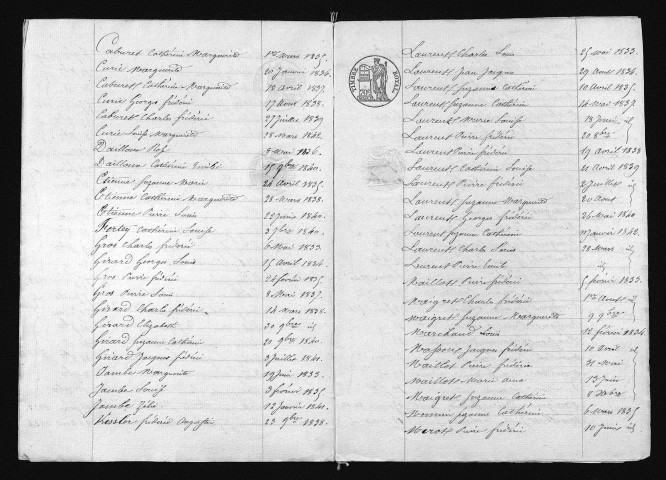 Caburet Catherine Marguerite 1er Mars 1835.
Curie Marguerite 20 Janvier 1836.
Caburet Catherine Marguerite 18 Avril 1837.
Curie George frédéric 17 Août 1838.
Caburet Charles frédéric 27 Juillet 1839
Curie Louise Marguerite 28 Mars 1842.
Dailloux 8 Mai 1836.
Dailloux Catherine Emilie 15 9bre 1840.
Etienne Suzanne Marie 24 Avril 1835.
Etienne Catherine Marguerite 28 Mars 1838.
Etienne Pierre Louis 22 Juin 1840.
Catherine Louise 3 7bre 1840.
Gros Charles frédéric 6 Mai 1833.
Girard George Louis 15 Avril 1834.
Gros Pierre frédéric 24 février 1835
Gros Pierre Louis 8 Mai 1837.
Girard Charles frédéric 14 Mars 1838.
Girard Elizabeth 30 9bre id
Girard Suzanne Catherine 20 9bre 1840.
Girard Jacques frédéric 3 Juillet 1841.
Jambe Marguerite 19 Juin 1833.
Jambe Louise 3 février 1835
Jambe Zélie 12 Janvier 1841.
Kessler frédéric Auguste 23 9bre 1838.
TIMBRE ROYAL
Laurent Charles Louis 25 Mai 1833.
Laurent Jean Jacques 29 Août 1834.
Laurent Suzanne Catherine 10 Avril 1835.
Laurent Suzanne Catherine 14 Mai 1837.
Laurent Louise 18 Janvier id
Laurent Pierre frédéric 20 8bre
Laurent Pierre frédéric 19 Avril 1838
Laurent Catherine Louise 21 Avril 1839
Laurent Pierre frédéric 2 Juillet id
Laurent Suzanne Marguerite 20 Août
Laurent George frédéric 26 Mai 1840
Laurent Suzanne Catherine Janvier 1842.
Laurent Charles Louis 28 Mars id
Laurent Pierre Emile id
Maillot Pierre frédéric 5 février 1833.
Maigret Charles frédéric 1er Août id
Maigret Suzanne Marguerite 9 9bre
Marchand Louis 12 février 1834.
Masson Jacques frédéric 10 Avril id
Maillot Pierre frédéric 31 Mai
Maillot Marie Ana 13 Juin
Maigret Suzanne Catherine 8 Xbre
Suzanne Catherine 6 Mars 1835
Pierre frédéric 10 Juin id